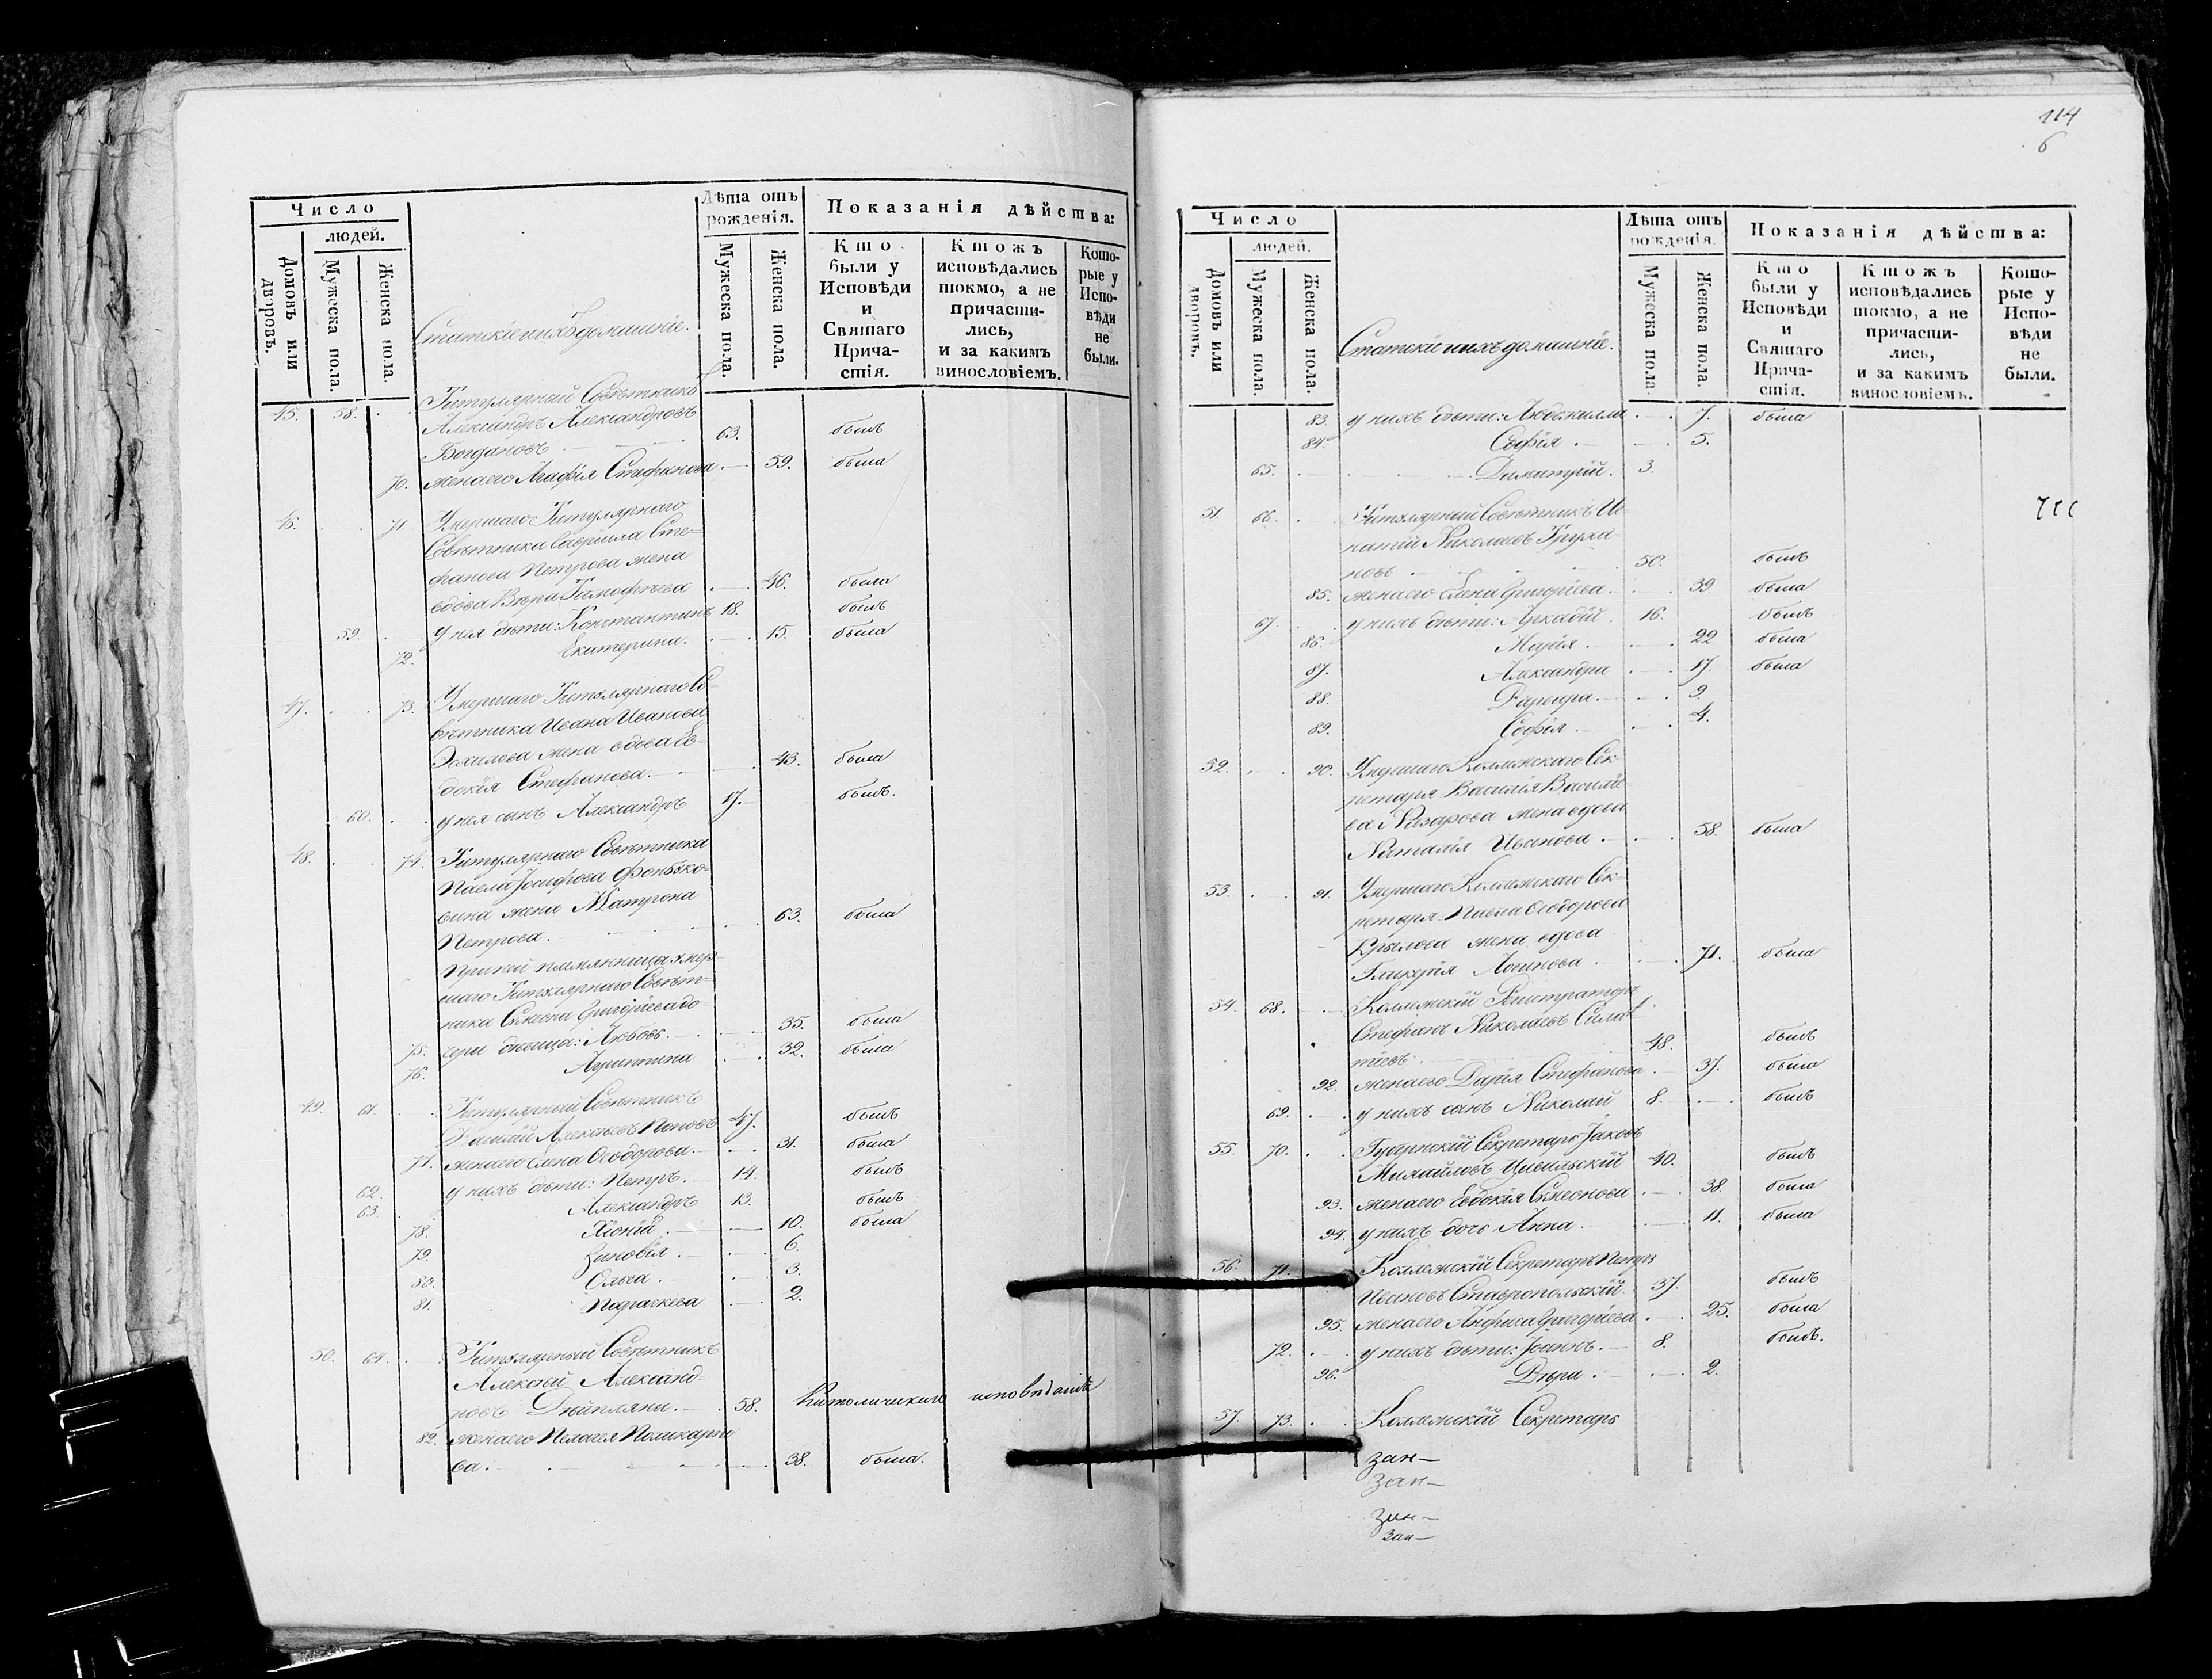 Число
людей.
Домовъ или дворовъ.
Мужеска пола.
Женска пола.
Статскіе и ихъ домашніе.
Лѣта отъ рожденія.
Мужеска пола.
Женска пола.
Показанія дѣйства:
Кто были у Исповѣди и Святаго Причастія.
Ктожъ исповѣдались токмо, а не причастились, и за какимъ винословіемъ.
Которые у Исповѣди не были.
45. 58. Титулярный Совѣтникъ
Александръ Александровъ
Богдановъ 63. былъ
70. жена его Агафія Стефанова 59. была
46. 71. Умершаго Титулярнаго
Совѣтника Гавриила Сте-
фанова Петрова жена
вдова Вѣра Тимофѣева 46. была
59. у нея дѣти: Константинъ 18. былъ
72. Екатерина. 15. была
47. 73. Умершаго Титулярнаго Со-
вѣтника Ивана Иванова
жена вдова Ев-
докія Стефанова. 43. была
60. у нея сынъ Александръ 17. былъ.
48. 74. Титулярнаго Совѣтника
Павла Іосифова
жена Матрона
Петрова. 63. была
При ней племянницы умер-
шаго Титулярнаго Совѣт-
ника Симеона Григорьева до-
75. чери дѣвицы: Любовь. 35. была
76. Агрипина 32. была
49. 61. Титулярный Совѣтникъ
Василій Алексѣевъ Поповъ 47. былъ
77. жена его Елена Ѳеодорова. 31. была
62. у нихъ дѣти: Петръ. 14. былъ
63. Александръ 13. былъ
78. Хіонія. 10. была
79. Зиновія. 6.
80. Ольга. 3.
81. Параскева 2.
50. 64. Титулярный Совѣтникъ
Алексѣй Александ-
ровъ 58. Католическаго исповѣданія
82. жена его Пелагея Поликарпо
ва. 38. была.
114
6
Число
людей.
Домовъ или дворовъ.
Мужеска пола.
Женска пола.
Статскіе и ихъ домашніе.
Лѣта отъ рожденія.
Мужеска пола.
Женска пола.
Показанія дѣйства:
Кто были у Исповѣди и Святаго Причастія.
Ктожъ исповѣдались токмо, а не причастились, и за какимъ винословіемъ.
Которые у Исповѣди не были.
83. у нихъ дѣти: Людмилла 7. была
84. Софія. 5.
65. Димитрій. 3.
51. 66. Титулярный Совѣтникъ Иг-
натій Николаевъ Грузи
новъ 50. былъ
85. жена его Елена Григорьева. 39. была
67. у нихъ дѣти: Аркадій. 16. былъ
86. Марія. 22. была
87. Александра 17. была
88. Варвара. 9.
89. Софія. 4.
52. 90. Умершаго Коллежскаго Сек-
ретаря Василія Василье
ва Назарова жена вдова
Наталія Иванова. 58. была
53. 91. Умершаго Коллежскаго Сек-
ретаря Павла Ѳеодорова
Крылова жена вдова
Гликерія Логинова. 71. была
54. 68. Коллежскій Регистраторъ
Стефанъ Николаевъ
48. былъ
92. жена его Дарія Стефанова. 37. была
69. у нихъ сынъ Николай 8. былъ
55. 70. Губернскій Секретарь Іаковъ
Михайловъ Цивильскій 40. былъ
93. жена его Евдокія Симеонова 38. была
94. у нихъ дочь Анна. 11. была
56. 71. Коллежскій Секретарь Петръ
Ивановъ Ставропольскій. 37. былъ
95. жена его Анфиса Григорьева. 25. была
72. у нихъ дѣти: Іоаннъ. 8. былъ.
96. Вѣра. 2.
57. 73. Коллежскій Секретарь